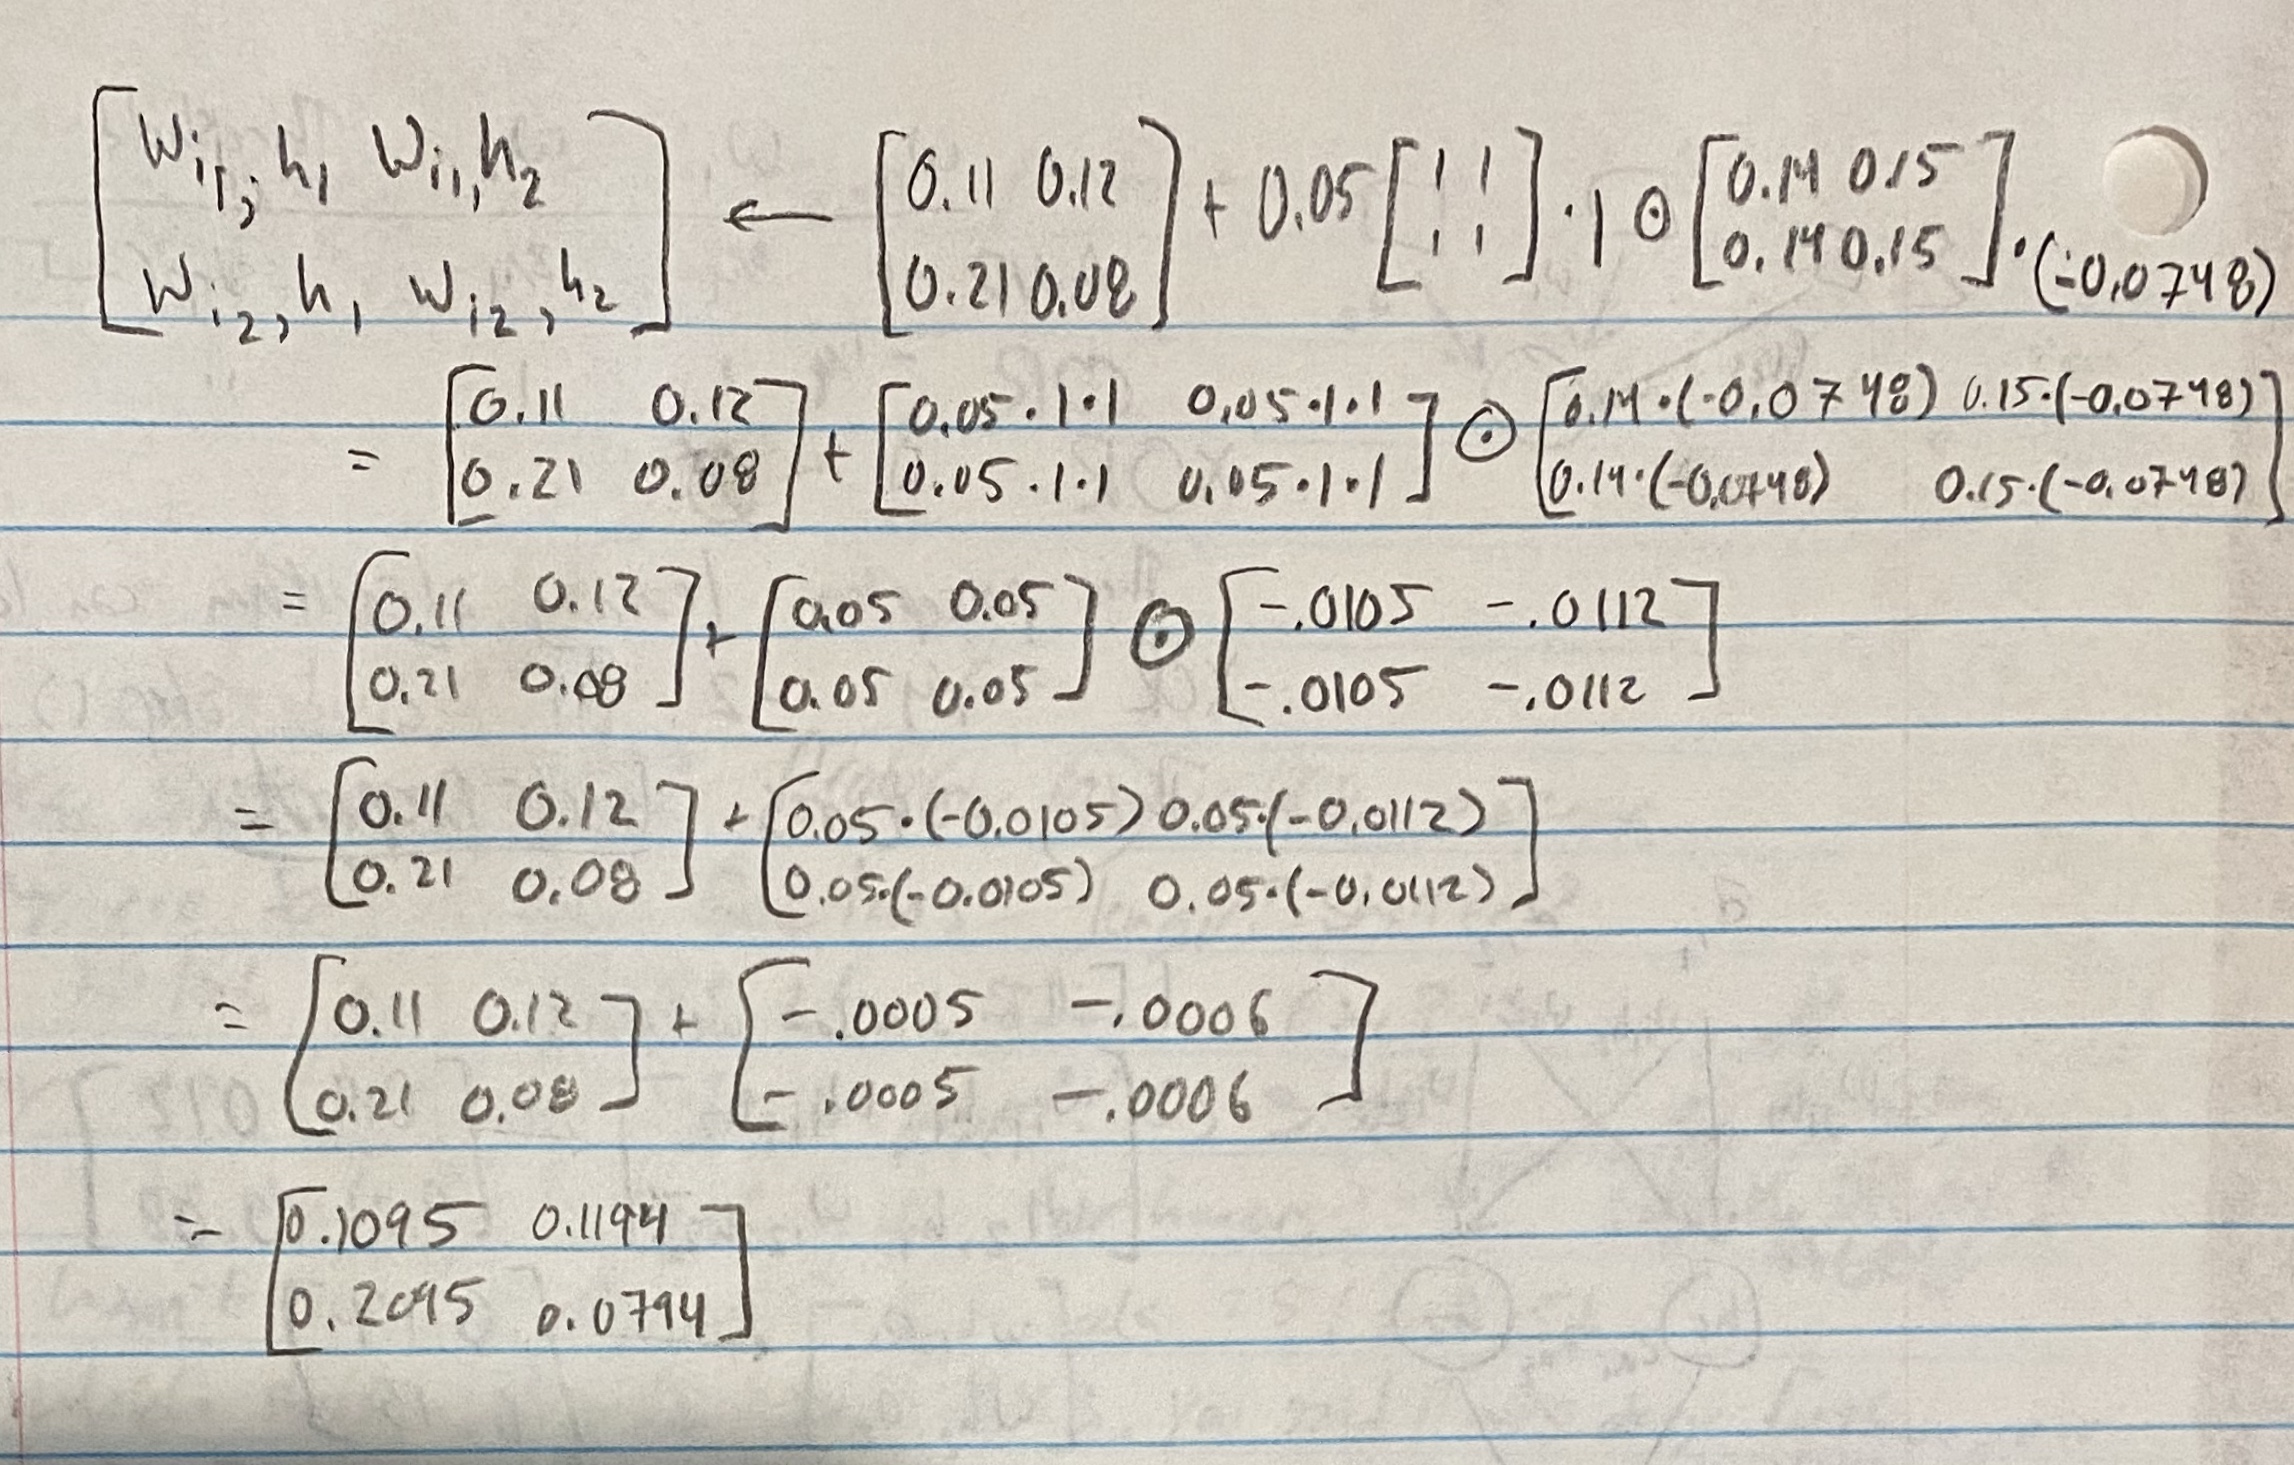 [w_{i1, h1} w_{i1, h2}; w_{i2, h1} w_{i2, h2}] ← [0.11 0.12; 0.21 0.08] + 0.05 [1 1; 1 1] · 1 ⊙ [0.14 0.15; 0.14 0.15] · (-0.0748)
= [0.11 0.12; 0.21 0.08] + [0.05·1·1 0.05·1·1; 0.05·1·1 0.05·1·1] ⊙ [0.14·(-0.0748) 0.15·(-0.0748); 0.14·(-0.0748) 0.15·(-0.0748)]
= [0.11 0.12; 0.21 0.08] + [0.05 0.05; 0.05 0.05] ⊙ [-.0105 -.0112; -.0105 -.0112]
= [0.11 0.12; 0.21 0.08] + [0.05·(-0.0105) 0.05·(-0.0112); 0.05·(-0.0105) 0.05·(-0.0112)]
= [0.11 0.12; 0.21 0.08] + [-.0005 -.0006; -.0005 -.0006]
= [0.1095 0.1194; 0.2095 0.0794]